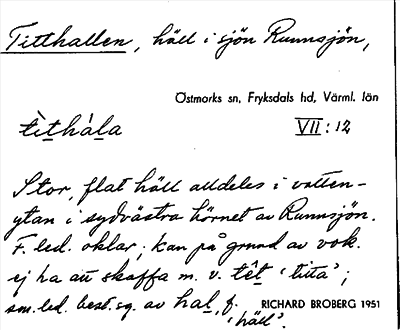 Titthallen, häll i sjön Runnsjön,
Östmarks sn, Fryksdals hd, Värml. län
tìthála
VII: 12
Stor, flat häll alldeles i vatten-
ytan i sydvästra hörnet av Runnsjön.
F. led. oklar; kan på grund av vok.
ej ha att skaffa m. v. têt 'titta';
sm. led. best. sg. av hal, f.
'häll'.
RICHARD BROBERG 1951